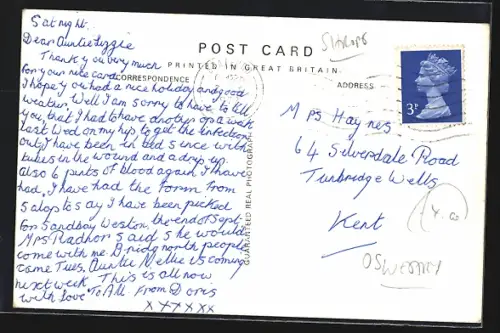 Sat night.
Dear Auntie Lizzie
Thank you very much
for your nice card.
I hope you had a nice holiday and good
weater. Well I am sorry to have to tell
you, that I had to have another op a week
last Wed on my hip to get the infection
out I have been in bed since with
tubes in the wound and a drip up.
also 6 pints of blood again I have
had. I have had the form from
Salop to say I have been picked
for Sandbay Weston. the end of Sept.
Mrs Radnor said she would
come with me. Bridgnorth people
come Tues. Auntie Nellie is coming
next week. This is all now
with love To All From Doris
x x x x x x x
POST CARD
PRINTED IN GREAT BRITAIN.
CORRESPONDENCE
ADDRESS
GUARANTEED REAL PHOTOGRAPH
Shrops
3P
Mrs Haynes
64 Silverdale Road
Tunbridge Wells
Kent
OSWESTRY